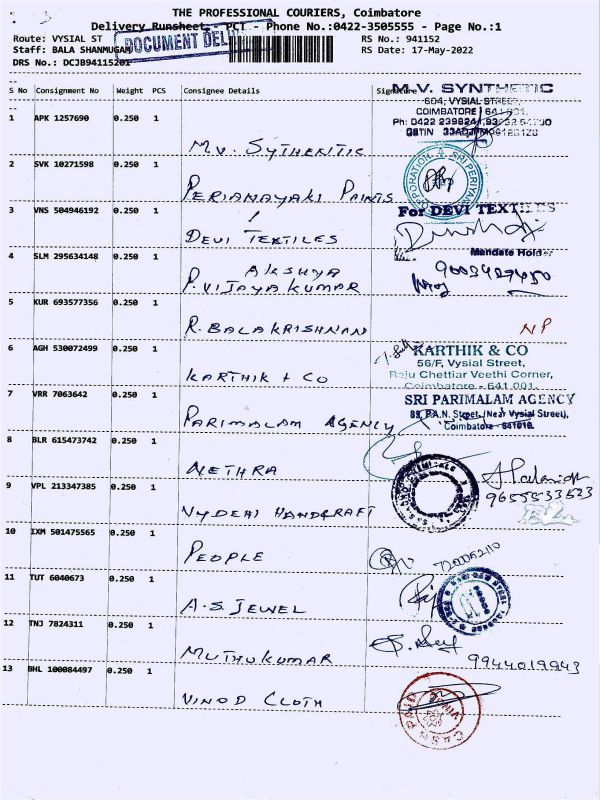 THE PROFESSIONAL COURIERS, Coimbatore
Delivery Runsheet - PCT - Phone No.:0422-3505555 - Page No.:1
Route: VYSIAL ST RS No.: 941152
Staff: BALA SHANMUGAM RS Date: 17-May-2022
DOCUMENT DEL
DRS No.: DCJB94115201
S No Consignment No Weight PCS Consignee Details Signature
M.V. SYNTHETIC
604, VYSIAL STREET,
COIMBATORE - 641 001.
1 APK 1257690 0.250 1
M.V. SYTHERITIC
2 SVK 10271598 0.250 1
PERIANAYAKI PAINTS
3 VNS 504946192 0.250 1
For DEVI TEXTILES
DEVI TEXTILES
Mandate Holder
4 SLM 295634148 0.250 1
AKSHYA
P.VIJAYAKUMAR
5 KUR 693577356 0.250 1
R.BALAKRISHNAN NP
6 AGH 530072499 0.250 1
KARTHIK & CO
56/F, Vysial Street,
Raju Chettiar Veethi Corner,
Coimbatore - 641 001.
KARTHIK + CO
7 VRR 7063642 0.250 1
SRI PARIMALAM AGENCY
(Near Vysial Street),
Coimbatore
PARIMALAM AGENCY
8 BLR 615473742 0.250 1
NETHRA
9 VPL 213347385 0.250 1
9655533523
VYDEHI HANDCRAFT
10 IXM 501475565 0.250 1
PEOPLE
11 TUT 6040673 0.250 1
A.S. JEWEL
12 TNJ 7824311 0.250 1
MUTHUKUMAR
9944019943
13 BHL 100084497 0.250 1
VINOD CLOTH
CASH PAID